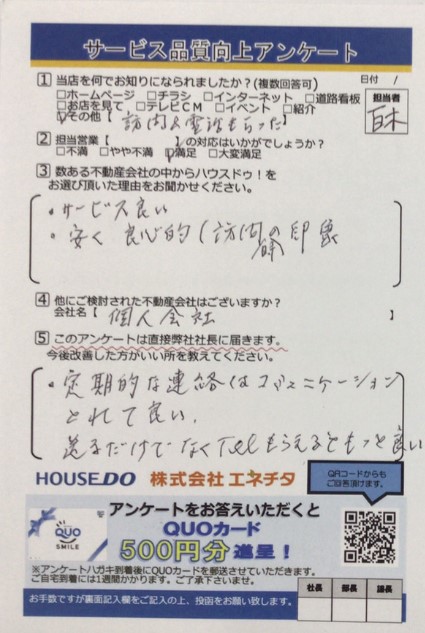 サービス品質向上アンケート
1 当店を何でお知りになられましたか？(複数回答可)
日付 /
□ホームページ □チラシ □インターネット □道路看板
□お店を見て □テレビCM □イベント □紹介
☑その他【訪問&電話もらった】
担当者
百木
2 担当営業【 】の対応はいかがでしょうか？
□不満 □やや不満 ☑満足 □大変満足
3 数ある不動産会社の中からハウスドゥ！を
お選び頂いた理由をお聞かせください。
・サービス良い
・安く 良心的 (訪問の印象
4 他にご検討された不動産会社はございますか？
会社名【個人会社 】
5 このアンケートは直接弊社社長に届きます。
今後改善した方がいい所を教えてください。
・定期的な連絡はコミュニケーション
とれて良い。
送るだけでなくTelもらえるともっと良い
HOUSEDO 株式会社 エネチタ
QRコードからも
ご回答頂けます。
アンケートをお答えいただくと
QUOカード
500円分 進呈！
QUO
SMILE
※アンケートハガキ到着後にQUOカードを郵送させていただきます。
ご自宅到着には1週間かかります。ご了承下さいませ。
お手数ですが裏面記入欄をご記入の上、投函をお願い致します。
社長 部長 課長